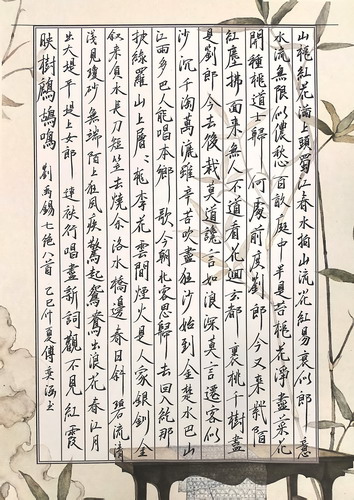 山桃紅花滿上頭蜀江春水拍山流花紅易衰似郎意
水流無限似儂愁百畝庭中半是苔桃花淨盡菜花
開種桃道士歸何處前度劉郎今又來紫陌
紅塵拂面來無人不道看花迴玄都裏桃千樹盡
是劉郎今去後栽莫道讒言如浪深莫言遷客似
沙沉千淘萬漉雖辛苦吹盡狂沙始到金楚水巴山
江雨多巴人能唱本鄉歌今朝北客思歸去回入紇那
披綠羅山上層〻桃李花雲間煙火是人家銀釧金
釵來負水長刀短笠去燒畬洛水橋邊春日斜碧流清
淺見瓊砂無端陌上狂風疾驚起鴛鴦出浪花春江月
出大堤平堤上女郎連袂行唱盡新詞觀不見紅霞
映樹鷓鴣鳴 劉禹錫七絕八首 乙巳 夏傅